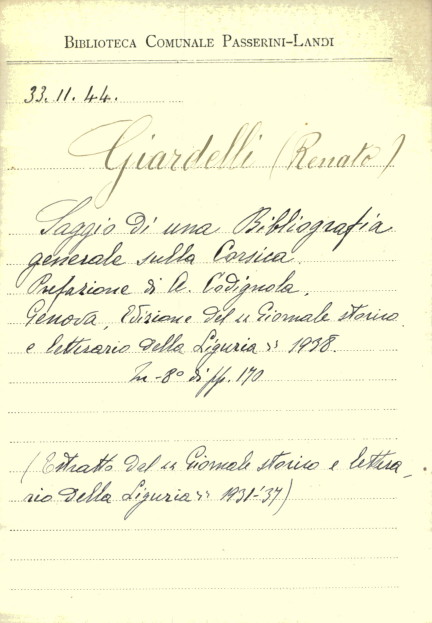 BIBLIOTECA COMUNALE PASSERINI-LANDI
33.11.44.
Giardelli (Renato)
Saggio di una Bibliografia
generale sulla Corsica.
Prefazione di A. Codignola,
Genova, Edizione del "Giornale storico
e letterario della Liguria" 1938.
In-8° di pp. 170
(Estratto dal "Giornale storico e lettera-
rio della Liguria" 1931-37)